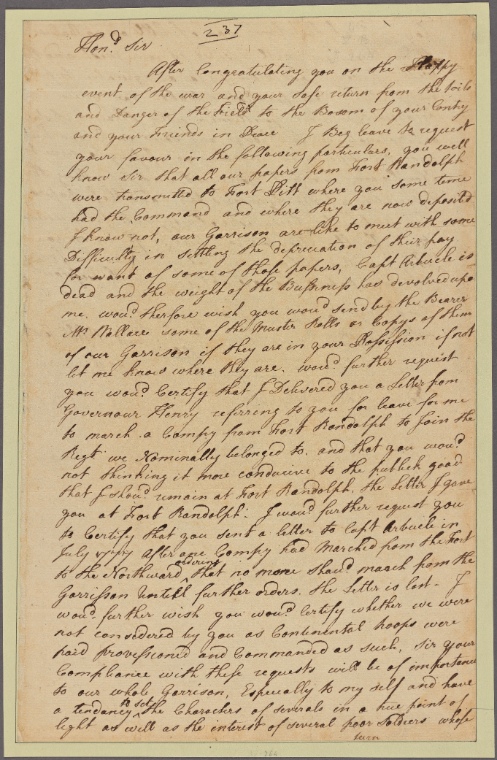 237
Hond. Sir
After Congratulating you on the Happy
event of the war and your safe return from the toils
and Danger of the Field to the Bosom of your Contry
and your Friends in Peace I Beg leave to request
your favour in the following particulars, you well
know Sir that all our papers from Fort Randolph
were transmitted to Fort Pitt where you some time
had the Command and where they are now deposited
I know not, our Garrison are like to meet with some
Difficulty in setling the depreciation of their pay
for want of some of those papers, Capt Arbucle is
dead and the weight of the Business has devolved upo
me. woud. therfore wish you woud send by the Bearer
Mr. Wallace some of the Muster Rolls or Copys of them
of our Garrison if they are in your Possession if not
let me know where they are. woud. further request
you woud. Certify that I Delivered you a Letter from
Governour Henry referring to you for leave for me
to march a Compy from Fort Randolph to Join the
Regt. we Nominally belonged to. and that you woud.
not thinking it more conducive to the publick good
that I shoud. remain at Fort Randolph, the Letter I gave
you at Fort Randolph. I woud. further request you
to Certify that you sent a letter to Capt Arbucle in
July after one Compy had Marched from the Fort
to the Northward ordering that no more shoud march from the
Garrison untill further orders. the Letter is lost - I
woud. further wish you woud. Certify whether we were
not considered by you as Continental troops were
paid Provissioned and Commanded as such, Sir your
Compliance with these requests will be of importance
to our whole Garrison, Especially to my self and have
a tendancy to set the Characters of severals in a true point of
light as well as the interest of several poor Soldiers whose